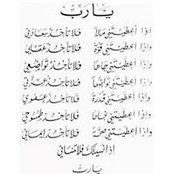 يا رب
إذا أعطيتني مالاً فلا تأخذ سعادتي
وإذا أعطيتني قوة فلا تأخذ عقلي
وإذا أعطيتني جاهاً فلا تأخذ تواضعي
وإذا أعطيتني تواضعاً فلا تأخذ عزتي
وإذا أعطيتني قدرة فلا تأخذ عفوي
وإذا أعطيتني فلا تأخذ
وإذا أعطيتني فلا تأخذ إيماني
إذا نسيتك فلا تنساني
يا رب